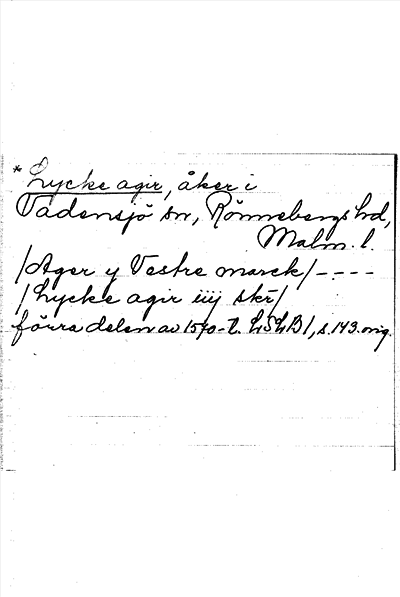 * Lycke agir, åker i
Vadensjö sn, Rönnebergs hd,
Malm. l.
/Ager y Vestre marck/-----
/Lycke agir iiij skr/
förra delen av 1570-t. LSLB 1, s. 143. orig.